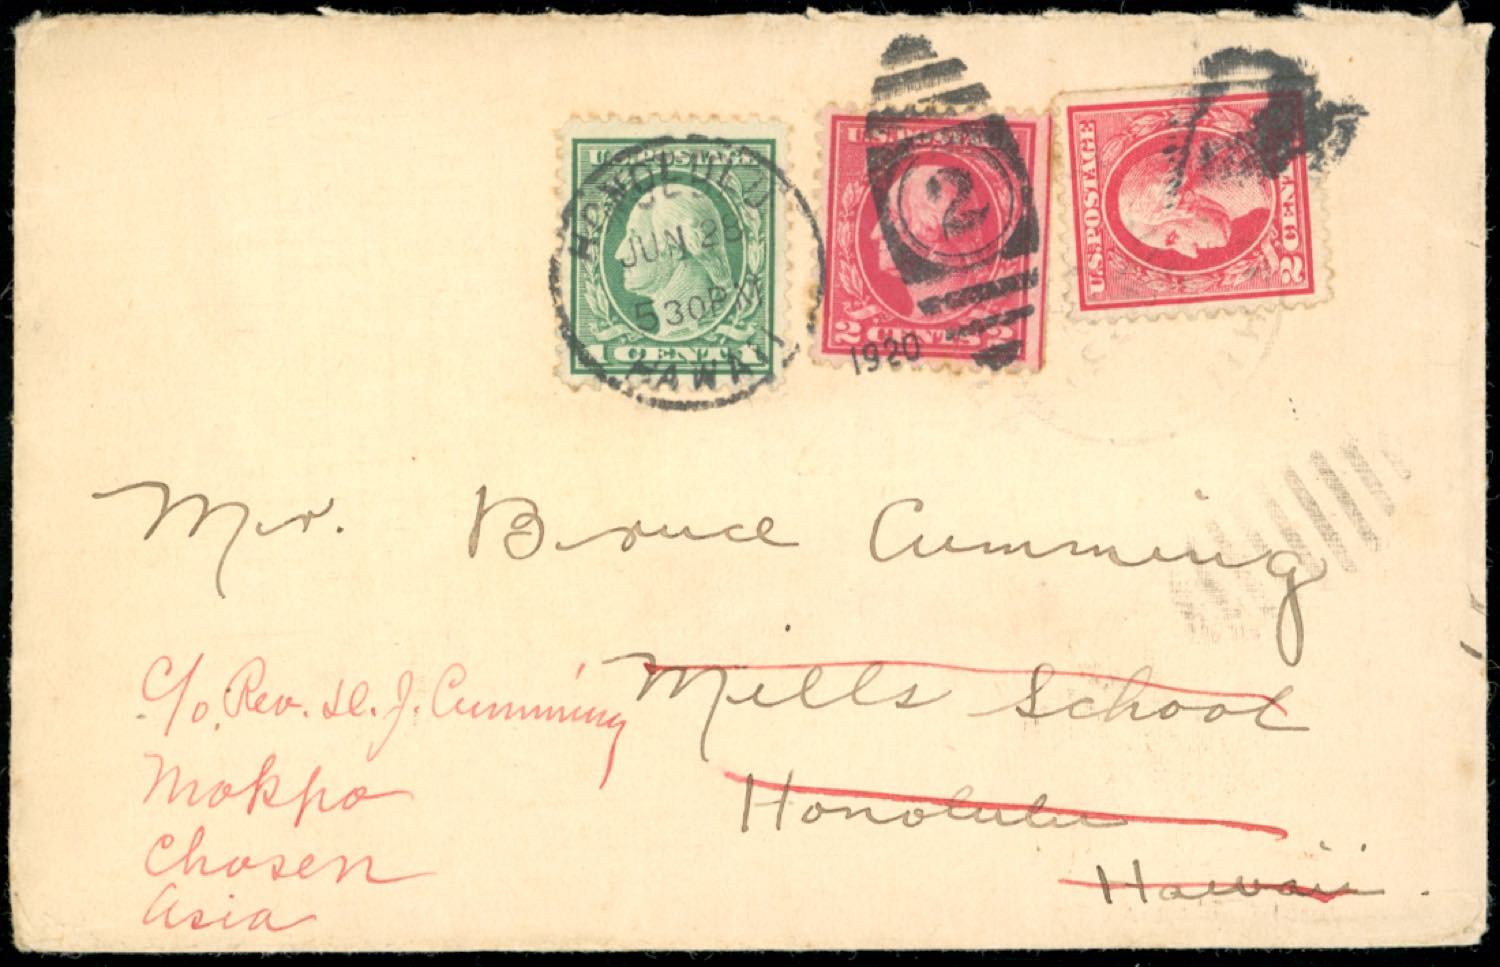 U.S. POSTAGE
1 CENT 1
HONOLULU
JUN 28
5 30 PM
HAWAII
U.S. POSTAGE
2 CENTS 2
2
1920
U.S. POSTAGE
2 CENT
Mr. Bruce Cumming
Mills School
Honolulu
Hawaii.
c/o Rev. D. J. Cumming
Mokpo
Chosen
Asia